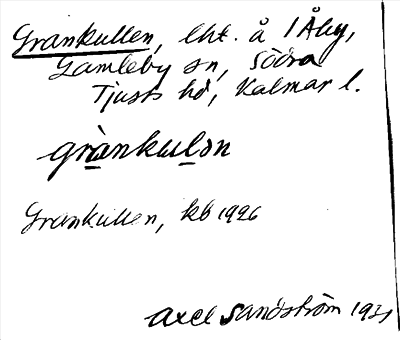 Grankullen, lht. å 1 Åby,
Gamleby sn, Södra
Tjusts hd, Kalmar l.
grànkulən
Grankullen, kb 1926
Axel Sandström 1931